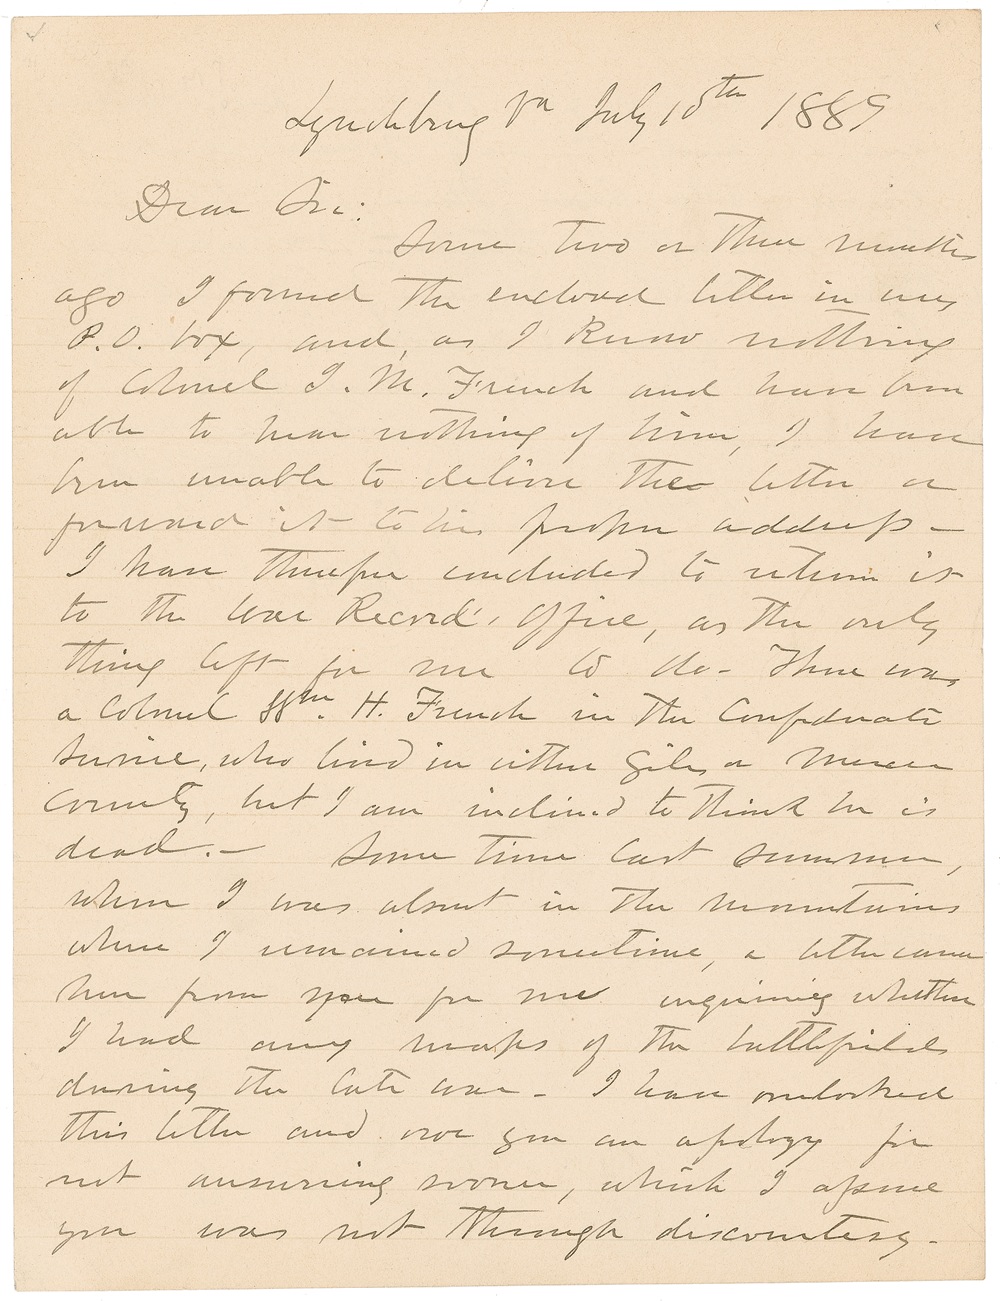 Lynchburg Va July 10th 1889
Dear Sir:
Some two or three months
ago I found the enclosed letter in my
P.O. box, and, as I know nothing
of Colonel J. M. French and have been
able to hear nothing of him, I have
been unable to deliver the letter or
forward it to his proper address –
I have therefore concluded to return it
to the War Record's Office, as the only
thing left for me to do – There was
a Colonel Wm. H. French in the Confederate
Service, who lived in either Giles or Mercer
County, but I am inclined to think he is
dead. – Some time last summer,
when I was absent in the mountains
where I remained sometime, a letter came
here from you for me enquiring whether
I had any maps of the battlefields
during the late war – I have overlooked
this letter and owe you an apology for
not answering sooner, which I assure
you was not through discourtesy –